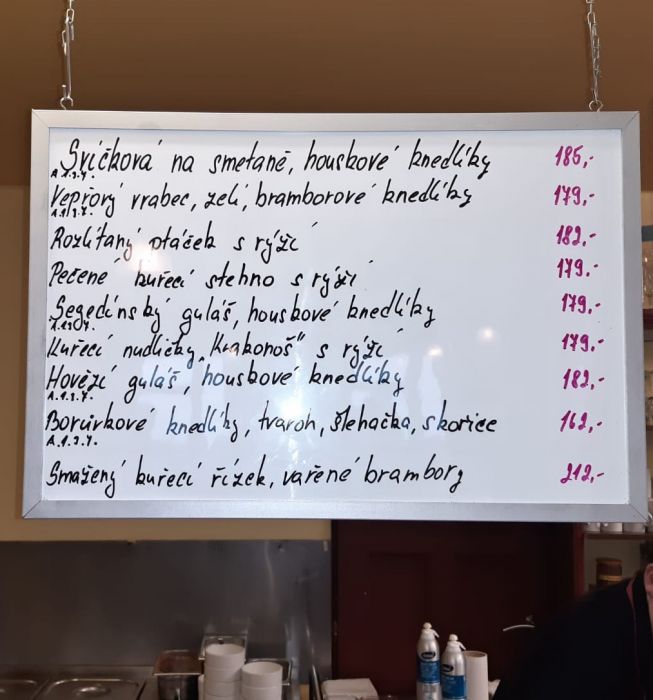 Svíčková na smetaně, houskové knedlíky 185,-
A.1.3.7.
Vepřový vrabec, zelí, bramborové knedlíky 179,-
A.1.3.7.
Rozlítaný ptáček s rýží 182,-
Pečené kuřecí stehno s rýží 179,-
Segedínský guláš, houskové knedlíky 179,-
Kuřecí nudličky „Krakonoš" s rýží 179,-
Hovězí guláš, houskové knedlíky 182,-
A.1.3.7.
Borůvkové knedlíky, tvaroh, šlehačka, skořice 162,-
A.1.3.7.
Smažený kuřecí řízek, vařené brambory 212,-